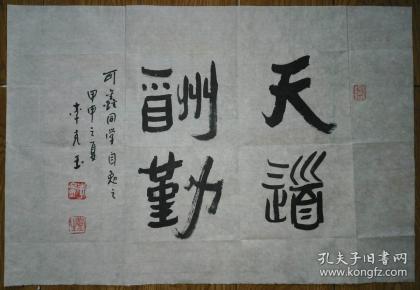 天道
酬勤
可鑫同学自勉之
甲申之夏
李克玉
孔夫子旧书网
www.kongfz.com